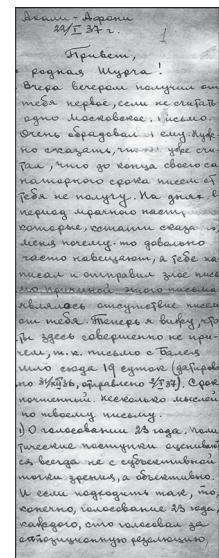 Акали-Афони
22/I 37 г.
1
Привет,
родная Шурча!
Вчера вечером получил от
тебя первое, если не считать
одно Московское. письмо.
Очень обрадовал ему. Нужно
сказати, что уже счи-
тал, что до конца своего са-
наторного срока писем от
тебя не получу. На днях в
период мрачного наст.
которые, кстати сказать,
меня почему-то довольно
часто навещают, я тебе на-
писал и отправил злое пись-
мо. Причиной этого письма
являлось отсутствие писем
от тебя. Теперь я вижу, что
ты здесь совершенно не при-
чем, т.к. письмо с Балея
шло сюда 19 суток (датиров
но 31/XII 36, отправлено 2/I 37). Срок
почтенный. Несколько мыслей
по твоему письму.
1) О голосовании 23 года. Поли-
тические поступки оценивают-
ся всегда не с субъективной
точки зрения, а объективно.
И если подходить так, то,
конечно, голосование 23 года,
каждого, кто голосовал за
оппозиционную резолюцию,